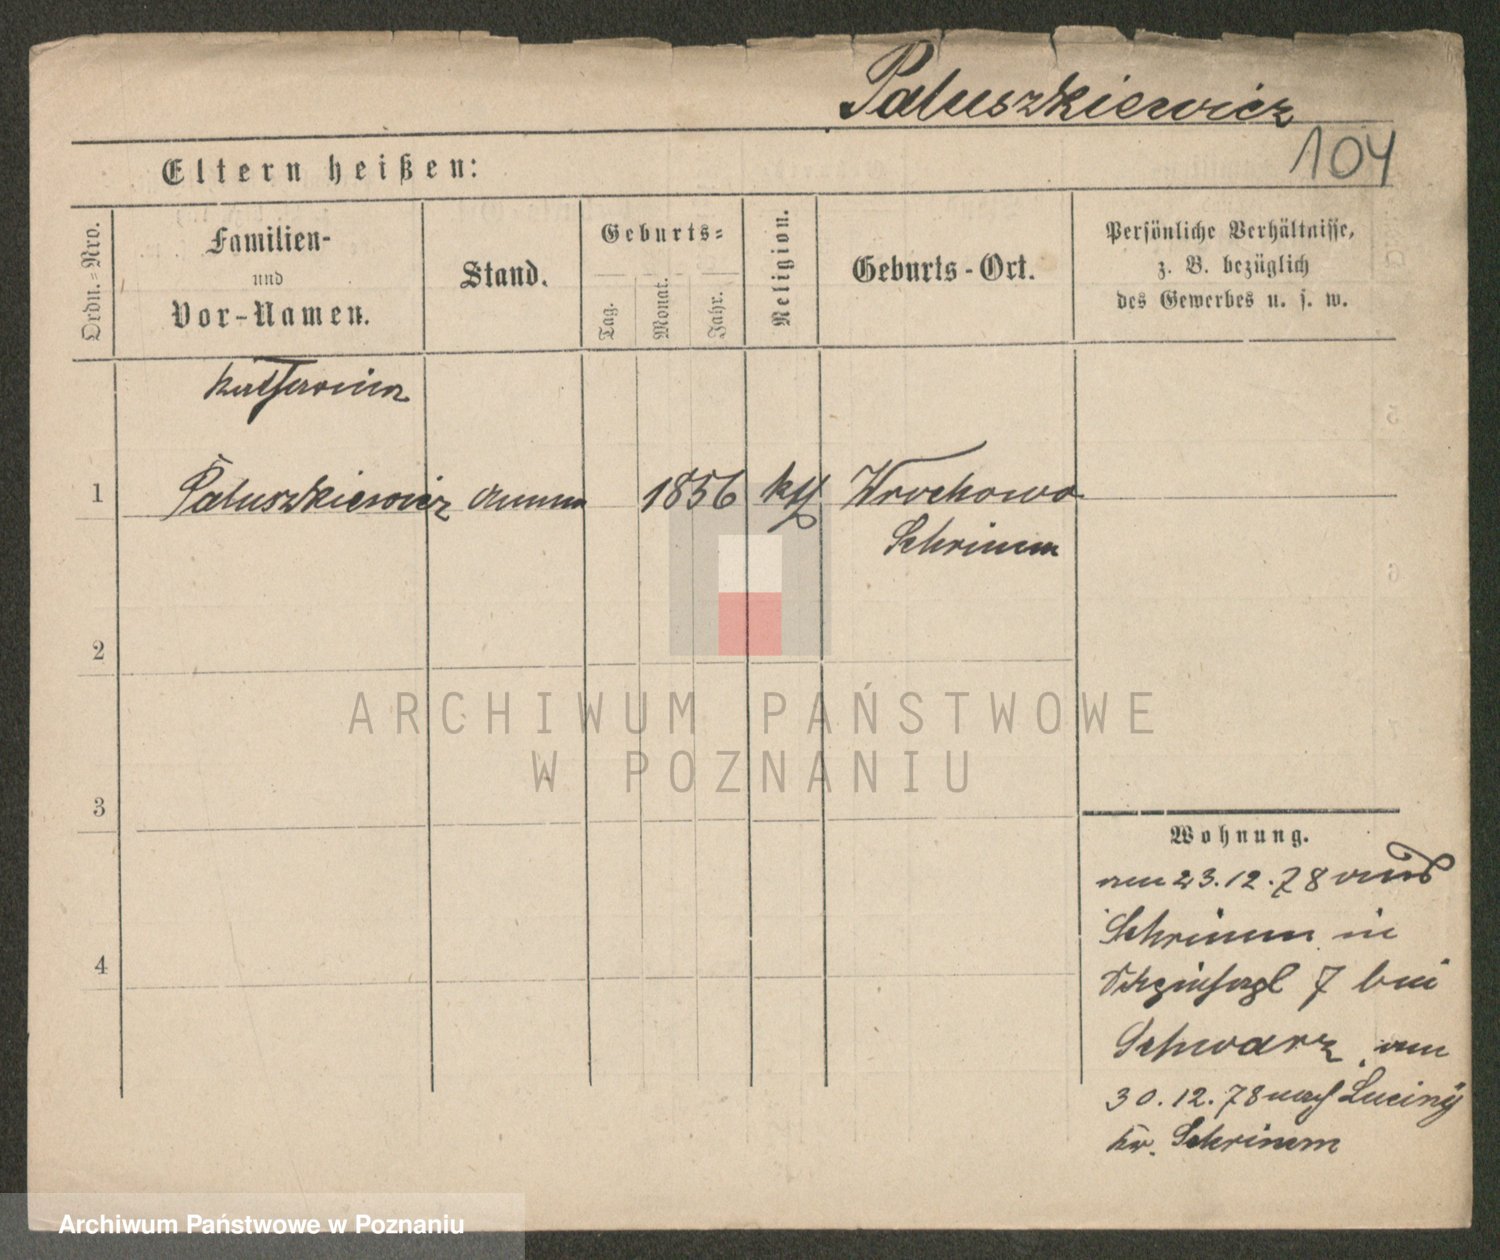 Paluszkiewicz
104
Eltern heißen:
Ordn.=Nro.
Familien-
und
Vor-Namen.
Stand.
Geburts=
Tag.
Monat.
Jahr.
Religion.
Geburts-Ort.
Persönliche Verhältnisse,
z. B. bezüglich
des Gewerbes u. s. w.
Katharina
1 Paluszkiewicz Amme 1856 kth Wrochowo
Schrimm
2
3
4
ARCHIWUM PAŃSTWOWE
W POZNANIU
Wohnung.
am 23.12.78 aus
Schrimm in
7 bei
Schwarz am
30.12.78 nach Luciny
Kr. Schrimm
Archiwum Państwowe w Poznaniu